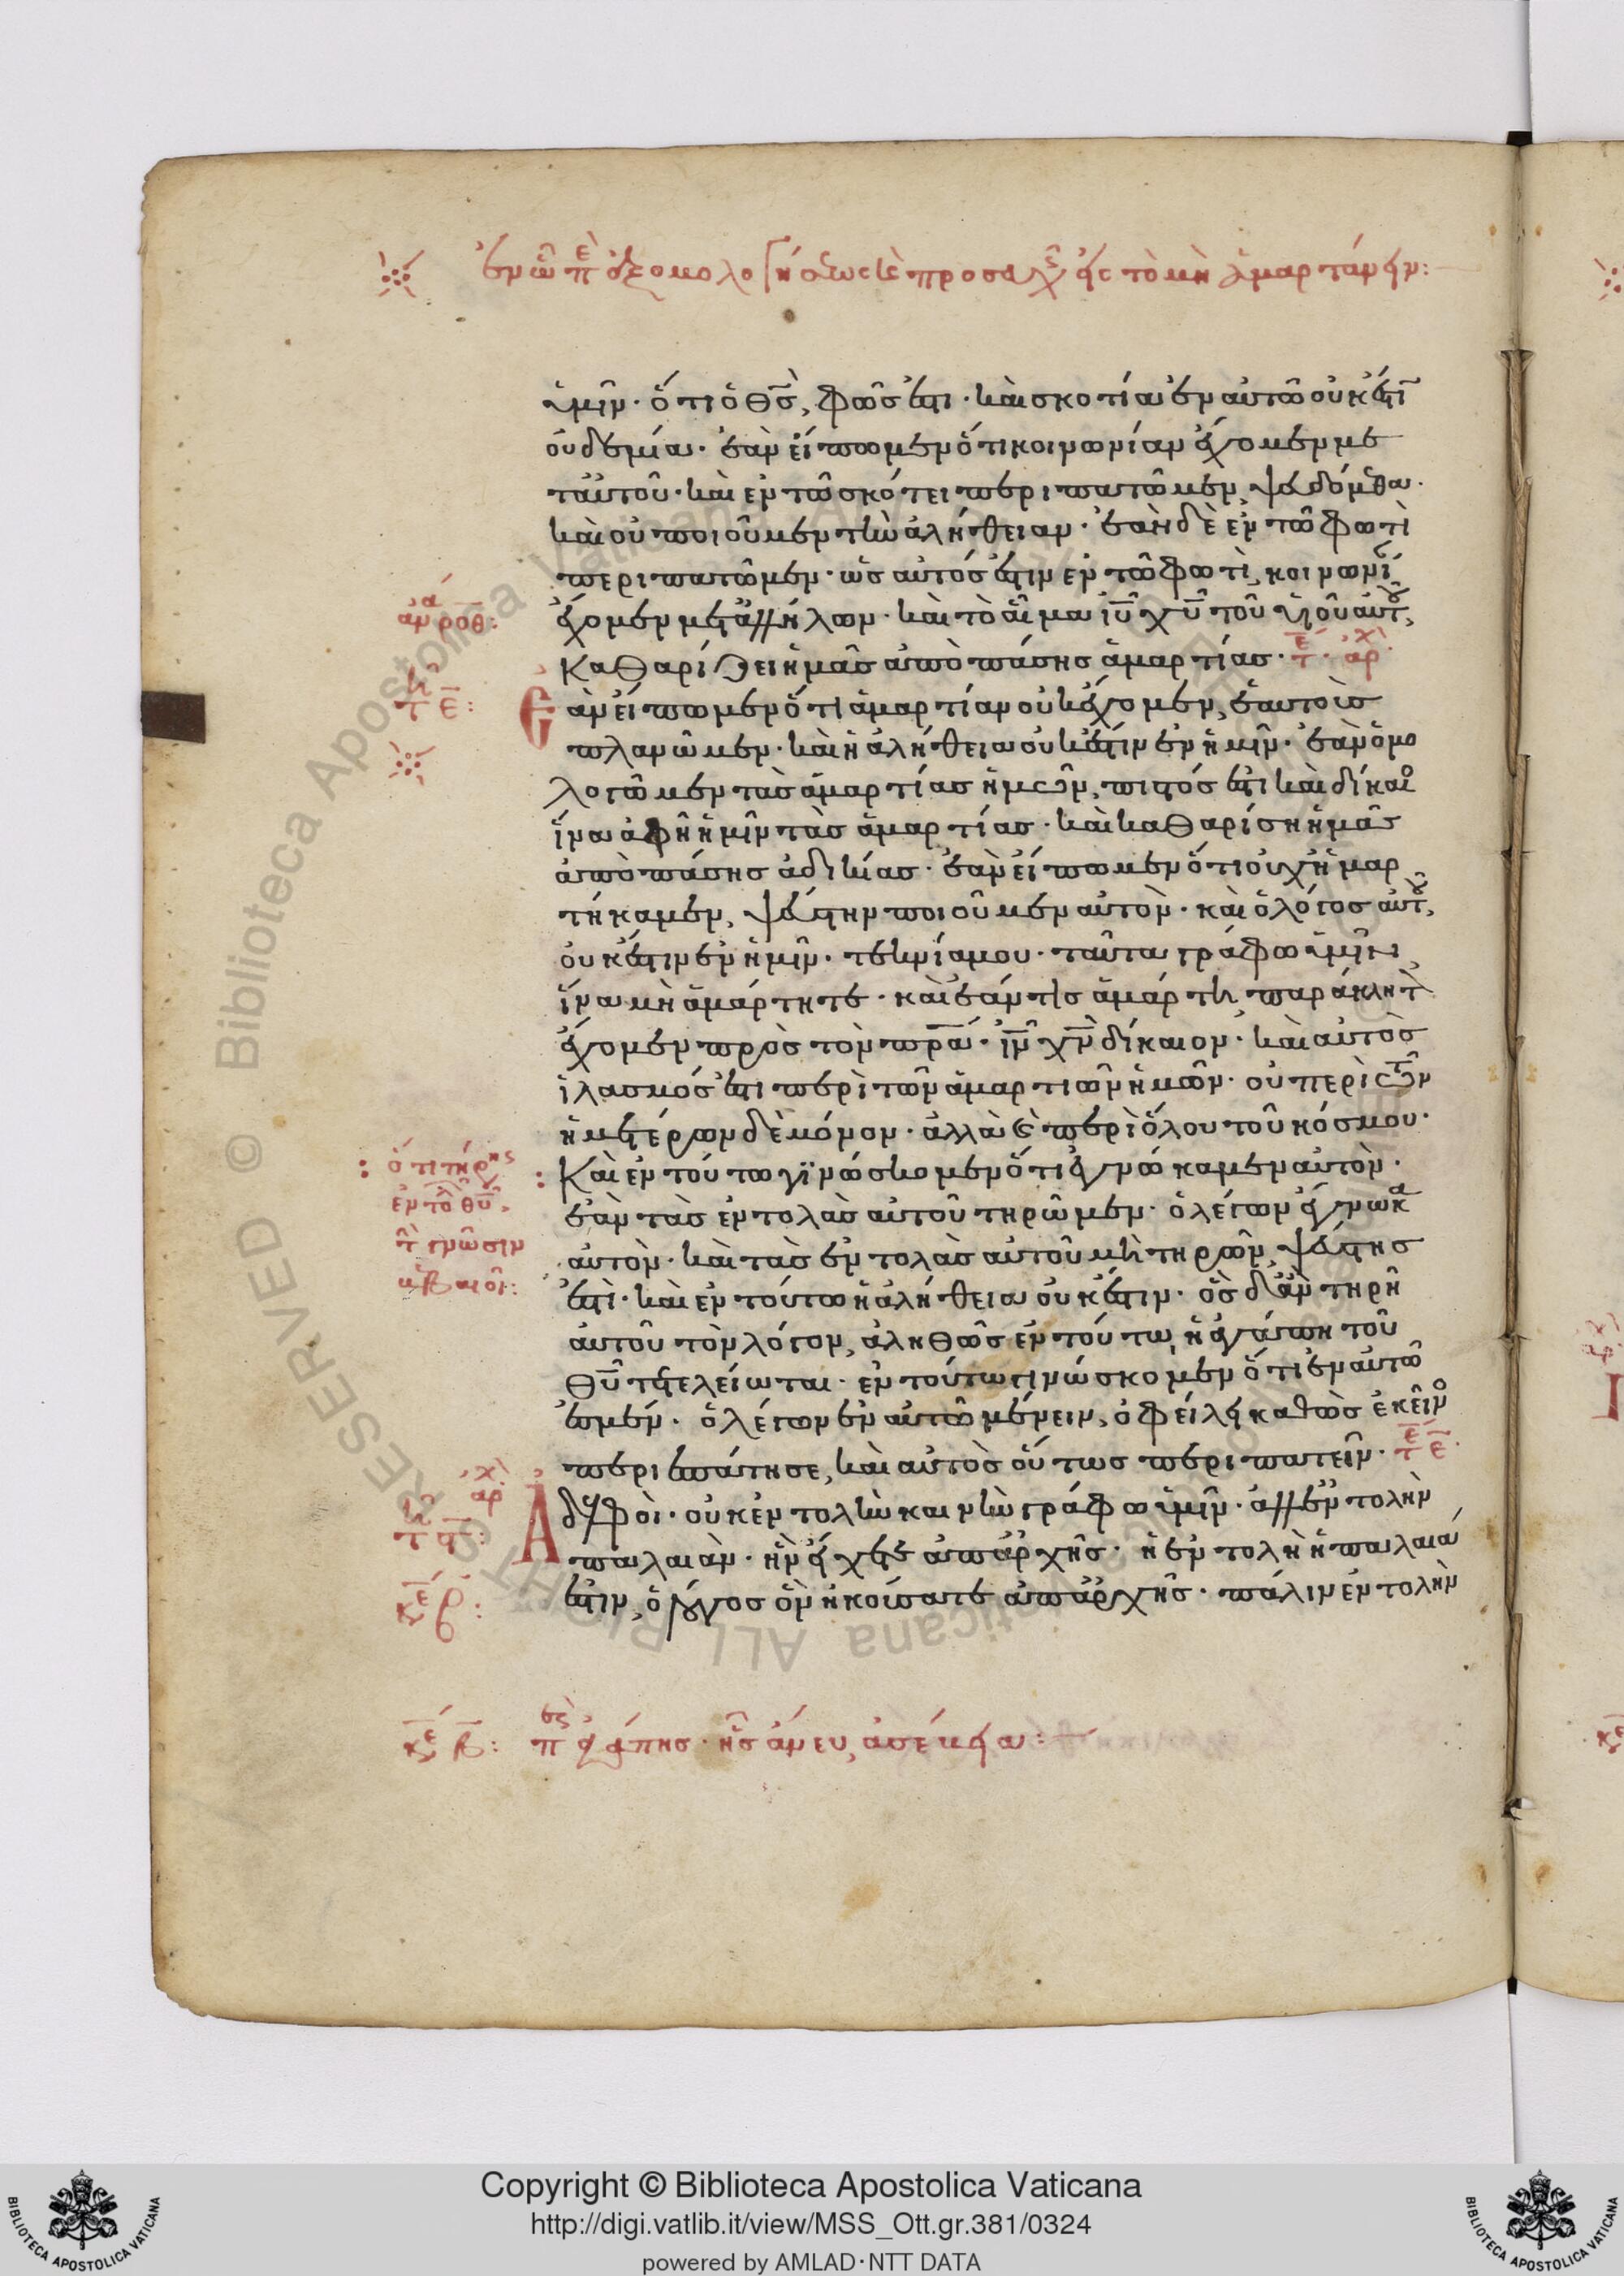 ἐν ὧ πε ἐξομολογήσεως καὶ προσευχῆς εἰς τὸ μὴ ἁμαρτάνειν:
ὑμῖν· ὅτι ὁ θς, φῶς ἐστι· καὶ σκοτία ἐν αὐτῶ οὐκ ἔστι
οὐδεμία· ἐὰν εἴπωμεν ὅτι κοινωνίαν ἔχομεν με
τ αὐτοῦ· καὶ ἐν τῶ σκότει περιπατῶμεν, ψευδόμεθα·
καὶ οὐ ποιοῦμεν τὴν ἀλήθειαν· ἐὰν δὲ ἐν τῶ φωτὶ
περιπατῶμεν· ὡς αὐτός ἐστιν ἐν τῶ φωτὶ, κοινωνί
ἔχομεν μετ ἀλλήλων· καὶ τὸ αἷμα ιυ χυ τοῦ υἱοῦ αὐτ,
καθαρίζει ἡμᾶς ἀπὸ πάσης ἁμαρτίας· τε· ἀρχ
ἀνα ροθ:
κυ τ ε:
Ἐὰν εἴπωμεν ὅτι ἁμαρτίαν οὐκ ἔχομεν, ἑαυτοὺς
πλανῶμεν· καὶ ἡ ἀλήθεια οὐκ ἔστιν ἐν ἡμῖν· ἐὰν ὁμο
λογῶμεν τὰς ἁμαρτίας ἡμῶν, πιστός ἐστι καὶ δίκαιο
ἵνα ἀφῆ ἡμῖν τὰς ἁμαρτίας· καὶ καθαρίση ἡμᾶς
ἀπὸ πάσης ἀδικίας· ἐὰν εἴπωμεν ὅτι οὐχ ἡμαρ
τήκαμεν, ψεύστην ποιοῦμεν αὐτὸν· καὶ ὁ λόγος αὐτ,
οὐκ ἔστιν ἐν ἡμῖν· τεκνία μου· ταῦτα γράφω ὑμῖν
ἵνα μὴ ἁμάρτητε· καὶ ἐάν τις ἁμάρτη, παράκλητ
ἔχομεν πρὸς τὸν πρα· ιν χν δίκαιον· καὶ αὐτὸς
ἱλασμός ἐστι περὶ τῶν ἁμαρτιῶν ἡμῶν· οὐ περὶ τῶν
ἡμετέρων δὲ μόνον· ἀλλὰ καὶ περὶ ὅλου τοῦ κόσμου·
: ὅτι τήρης
ἐντολ θυ,
τ γνῶσιν
βεβαιοῖ:
: Καὶ ἐν τούτω γϊνώσκομεν ὅτι ἐγνώκαμεν αὐτὸν·
ἐὰν τὰς ἐντολὰς αὐτοῦ τηρῶμεν· ὁ λέγων ἔγνωκα
αὐτὸν· καὶ τὰς ἐντολὰς αὐτοῦ μὴ τηρῶν, ψεύστης
ἐστὶ· καὶ ἐν τούτω ἡ ἀλήθεια οὐκ ἔστιν· ὃς δ ἂν τηρῆ
αὐτοῦ τὸν λόγον, ἀληθῶς ἐν τούτω, ἡ ἀγάπη τοῦ
θυ τετελείωται· ἐν τούτω γινώσκομεν ὅτι ἐν αὐτῶ
ἐσμέν· ὁ λέγων ἐν αὐτῶ μένειν, ὀφείλει καθὼς ἐκεῖνο
περιεπάτησε, καὶ αὐτὸς οὕτως περιπατεῖν· τε ε·
κυ τ ϛ: ἀρχ
Ἀδελφοὶ· οὐκ ἐντολὴν καινὴν γράφω ὑμῖν· ἀλλ ἐντολὴν
παλαιὰν· ἣν εἴχετε ἀπ ἀρχῆς· ἡ ἐντολὴ ἡ παλαιά
κε β:
ἐστιν, ὁ λόγος ὃν ἠκούσατε ἀπ ἀρχῆς· πάλιν ἐντολὴν
κε β: πε ἀγάπης· ἧς ἄνευ, ἀσέβεια:
Copyright © Biblioteca Apostolica Vaticana
http://digi.vatlib.it/view/MSS_Ott.gr.381/0324
powered by AMLAD·NTT DATA